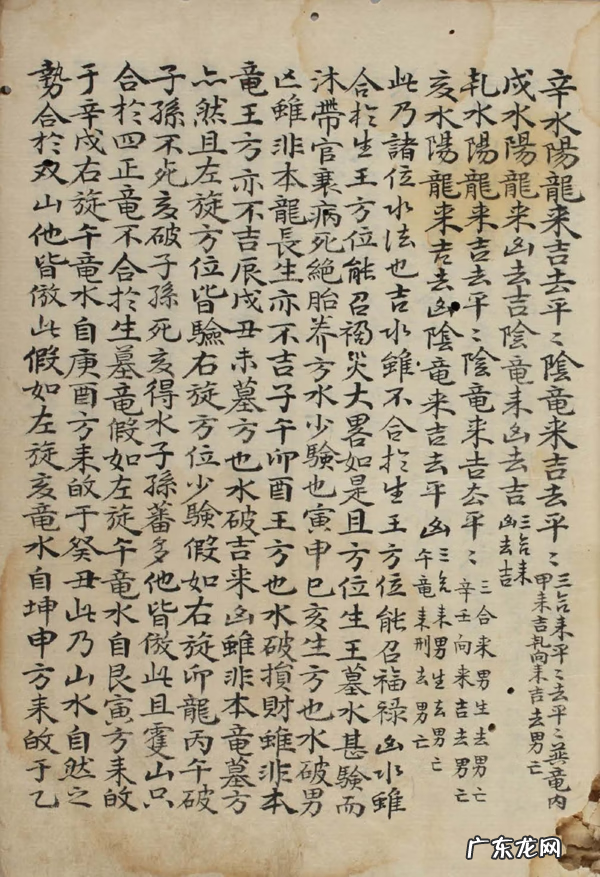 辛水陽龍来吉去平〻陰竜来吉去平〻三合来平〻去平〻英竜内
甲来吉乹向来吉去男亡
戍水陽龍来凶去吉陰竜来凶去吉三合来
凶去吉
乹水陽龍来吉去平〻陰竜来吉去平〻三合来男生去男亡
辛壬向来吉去男亡
亥水陽龍来吉去凶陰竜来吉去平凶三合来男生去男亡
午竜来刑去男亡
此乃諸位水法也吉水雖不合扵生王方位能召福禄凶水雖
合扵生王方位能召禍災大畧如是且方位生王墓水甚験而
沐帶官衰病死絶胎养方水少験也寅申巳亥生方也水破男
凶雖非本龍長生亦不吉子午卯酉王方也水破損財雖非本
竜王方亦不吉辰戍丑未墓方也水破吉来凶雖非本竜墓方
亦然且左旋方位皆驗右旋方位少験假如右旋卯龍丙午破
子孫不死亥破子孫死亥得水子孫蕃多他皆倣此且䨥山只
合扵四正竜不合扵生墓竜假如左旋午竜水自艮寅方来的
于辛戍右旋午竜水自庚酉方来的于癸丑此乃山水自然之
勢合扵双山他皆倣此假如左旋亥竜水自坤申方来的于乙
广东龙网